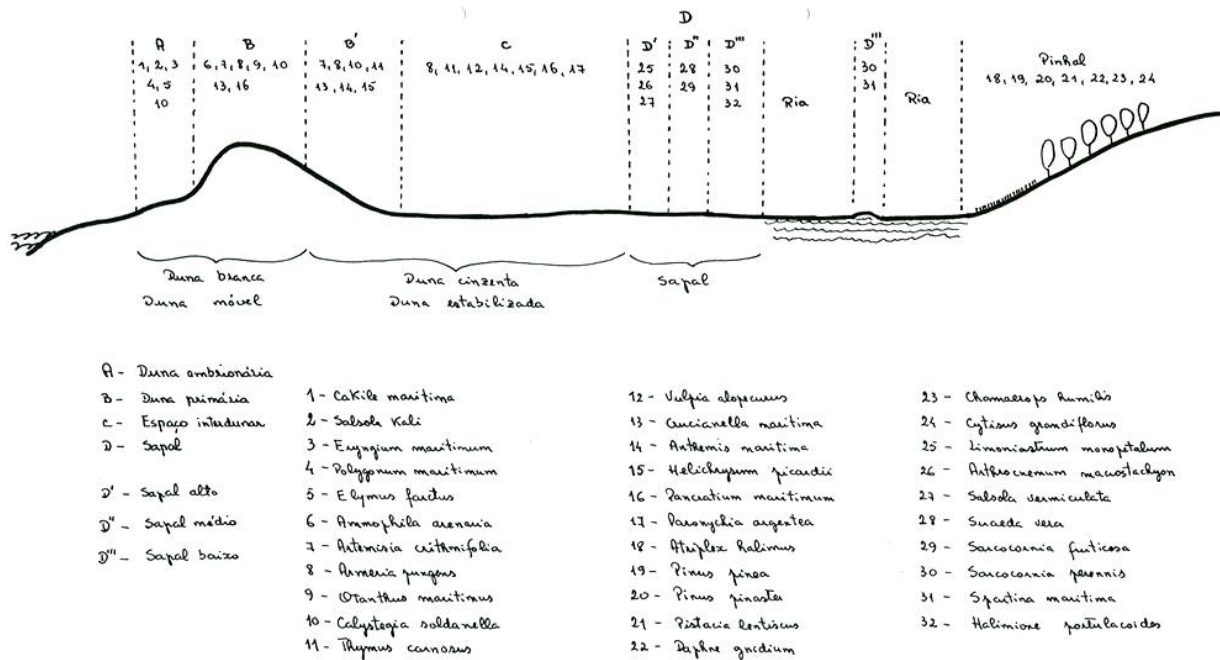 D
A B B' C D' D'' D''' D''' Pinhal
1, 2, 3 6, 7, 8, 9, 10 7, 8, 10, 11 8, 11, 12, 14, 15, 16, 17 25 28 30 30 18, 19, 20, 21, 22, 23, 24
4, 5 13, 16 13, 14, 15 26 29 31 31
10 27 32 Ria Ria
Duna branca Duna cinzenta Sapal
Duna móvel Duna estabilizada
A - Duna embrionária
B - Duna primária
C - Espaço interdunar
D - Sapal
D' - Sapal alto
D'' - Sapal médio
D''' - Sapal baixo
1 - Cakile maritima
2 - Salsola Kali
3 - Eryngium maritimum
4 - Polygonum maritimum
5 - Elymus farctus
6 - Ammophila arenaria
7 - Artemisia crithmifolia
8 - Armeria pungens
9 - Otanthus maritimus
10 - Calystegia soldanella
11 - Thymus carnosus
12 - Vulpia alopecurus
13 - Crucianella maritima
14 - Anthemis maritima
15 - Helichrysum picardii
16 - Pancratium maritimum
17 - Paronychia argentea
18 - Atriplex halimus
19 - Pinus pinea
20 - Pinus pinaster
21 - Pistacia lentiscus
22 - Daphne gnidium
23 - Chamaerops humilis
24 - Cytisus grandiflorus
25 - Limoniastrum monopetalum
26 - Arthrocnemum macrostachyon
27 - Salsola vermiculata
28 - Suaeda vera
29 - Sarcocornia fruticosa
30 - Sarcocornia perennis
31 - Spartina maritima
32 - Halimione portulacoides